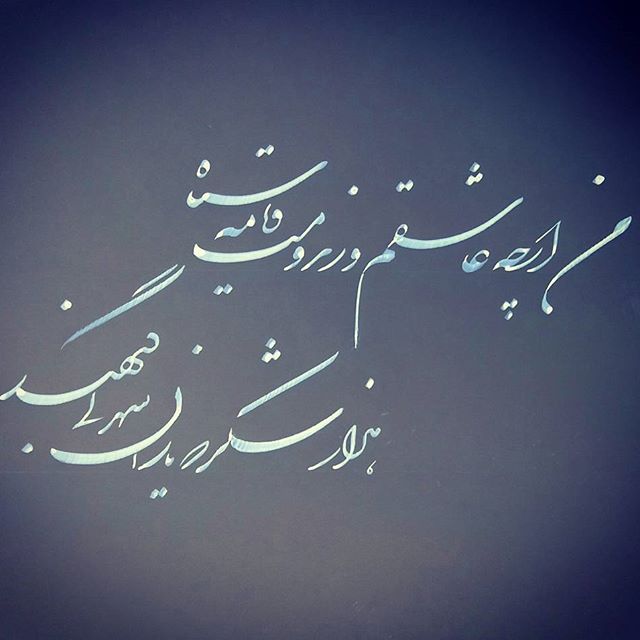 من ارچه عاشقم و رند و مست و نامه سیاه
هزار شکر که یاران شهر بی گنهند